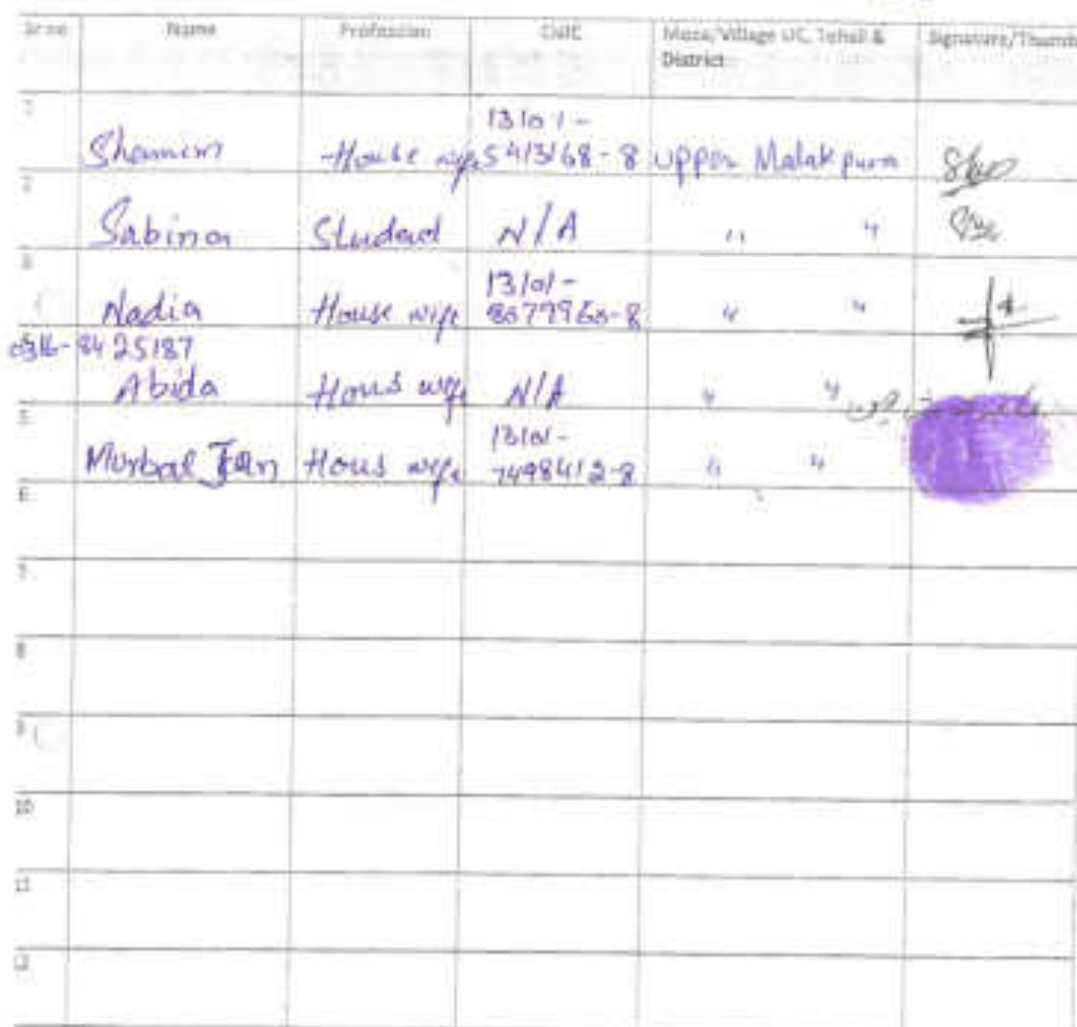 Sr no Name Profession CNIC Moza/Village UC, Tehsil & District Signature/Thumb
1 Shamim House wife 13101-5413168-8 Upper Malakpura
2 Sabina Studend N/A " "
3 Nadia House wife 13101-8077960-8 " "
0316-8425187
Abida Hous wife N/A " "
5 Murbal Jan Hous wife 13101-7498412-8 " "
6
7
8
9
10
11
12